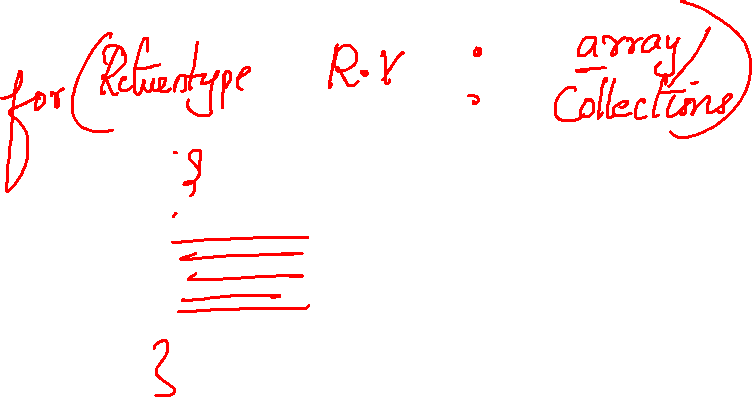 for(Returntype R.V : array/
Collections)
{
}